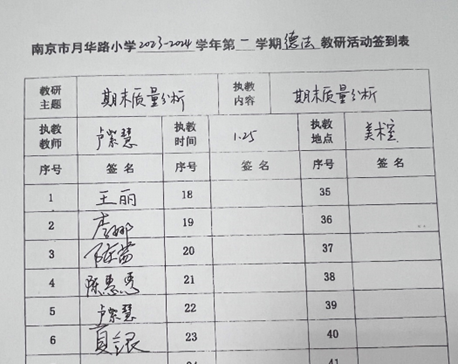 南京市月华路小学2023-2024学年第一学期德法教研活动签到表
教研主题 期末质量分析 执教内容 期末质量分析
执教教师 卢紫慧 执教时间 1.25 执教地点 美术室
序号 签名 序号 签名 序号 签名
1 王丽 18 35
2 19 36
3 20 37
4 陈惠秀 21 38
5 卢紫慧 22 39
6 23 40